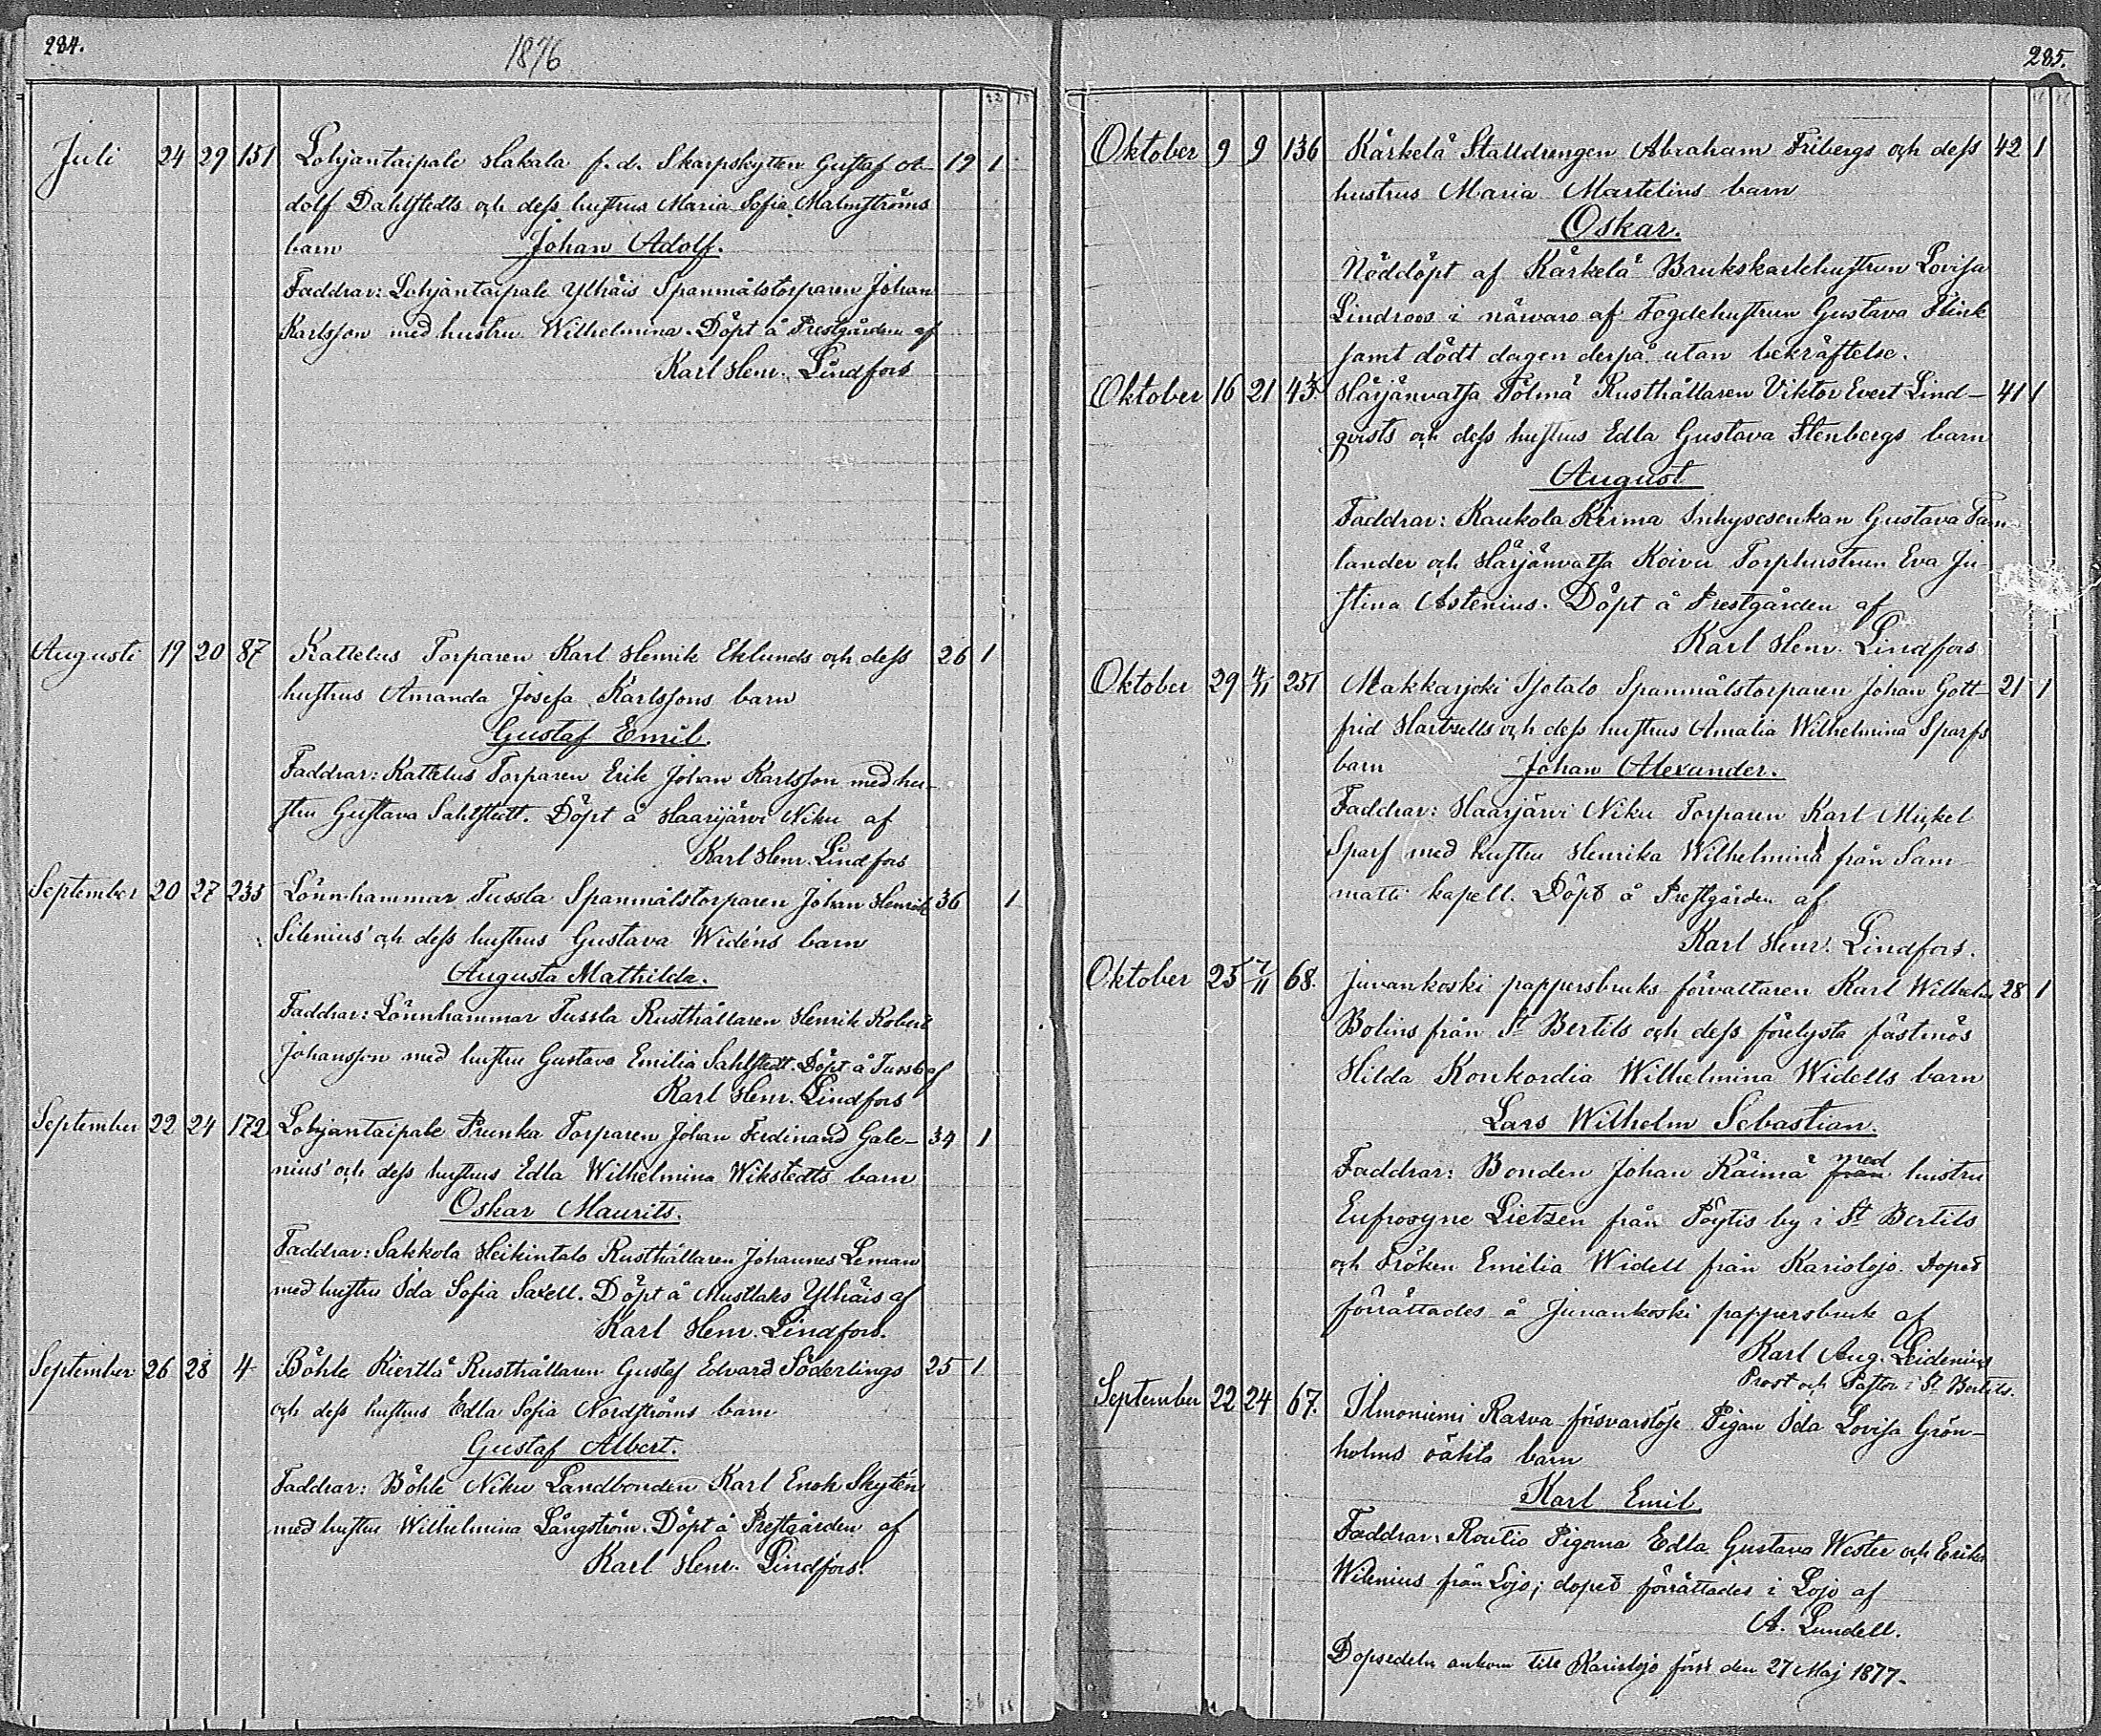 284.
1876
Juli 24 29 151 Lohjantaipale Hakala f.d. Skarpskytten Gustaf A- 19 1
dolf Dahlstedts och dess hustrus Maria Sofia Malmströms
barn Johan Adolf.
Faddrar: Lohjantaipale Ylhäis Spanmålstorparen Johan
Karlsson med hustru Wilhelmina. Döpt å Prestgården af
Karl Henr. Lindfors
Augusti 19 20 87 Kattelus Torparen Karl Henrik Eklunds och dess 26 1
hustrus Amanda Josefa Karlssons barn
Gustaf Emil.
Faddrar: Kattelus Torparen Erik Johan Karlsson med hu-
stru Gustava Sahlstedt. Döpt å Haarijärvi Niku af
Karl Henr. Lindfors
September 20 27 235 Lönnhammar Tussla Spanmålstorparen Johan Henrik 36 1
Silenius' och dess hustrus Gustava Widéns barn
Augusta Mathilda.
Faddrar: Lönnhammar Tussla Rusthållaren Henrik Robert
Johansson med hustru Gustava Emilia Sahlstedt. Döpt å Tussla af
Karl Henr. Lindfors
September 22 24 172 Lohjantaipale Prunka Torparen Johan Ferdinand Gale- 34 1
nius' och dess hustrus Edla Wilhelmina Wikstedts barn
Oskar Maurits.
Faddrar: Sakkola Heikintalo Rusthållaren Johannes Leman
med hustru Ida Sofia Saxell. Döpt å Mustlaks Ylhäis af
Karl Henr. Lindfors.
September 26 28 4 Böhle Kierlä Rusthållaren Gustaf Edvard Söderlings 25 1
och dess hustrus Edla Sofia Nordströms barn
Gustaf Albert.
Faddrar: Böhle Niku Landbonden Karl Enok Skytén
med hustru Wilhelmina Långström. Döpt å Prestgården af
Karl Henr. Lindfors.
285.
Oktober 9 9 136 Kärkelä Stalldrängen Abraham Fribergs och dess 42 1
hustrus Maria Martelins barn
Oskar.
Nöddöpt af Kärkelä Brukskarlehustrun Lovisa
Lindroos i närvaro af Fogdehustrun Gustava Flink
samt dödt dagen derpå utan bekräftelse.
Oktober 16 21 43. Härjänvatsa Tölmä Rusthållaren Viktor Evert Lind- 41 1
qvists och dess hustrus Edla Gustava Stenbergs barn
August
Faddrar: Kaukola Kirma Inhysesenkan Gustava Tam-
lander och Härjänvatsa Koivu Torphustrun Eva Ju-
stina Astenius. Döpt å Prestgården af
Karl Henr. Lindfors
Oktober 29 4/11 251 Makkarjoki Isotalo Spanmålstorparen Johan Gott- 21 1
frid Hartvells och dess hustrus Amalia Wilhelmina Sparfs
barn Johan Alexander.
Faddrar: Haarjärvi Niku Torparen Karl Mickel
Sparf med hustru Henrika Wilhelmina från Sam-
matti kapell. Döpt å Prestgården af
Karl Henr. Lindfors.
Oktober 25 7/11 68. Juvankoski pappersbruks förvaltaren Karl Wilhelm 28 1
Bolins från St Bertils och dess förelysta fästmös
Hilda Konkordia Wilhelmina Widells barn
Lars Wilhelm Sebastian.
Faddrar: Bonden Johan Räimä från med hustru
Eufrosyne Lietzen från Pöytis by i St Bertils
och Fröken Emilia Widell från Karislojo. Dopet
förrättades å Juvankoski pappersbruk af
Karl Aug. Leidenius
Prost och Pastor i St Bertils.
September 22 24 67. Ilmoniemi Rasva försvarslöse Pigan Ida Lovisa Grön-
holms oäkta barn
Karl Emil
Faddrar: Routio Pigorna Edla Gustava Wester och Erika
Wilenius från Lojo; dopet förrättades i Lojo af
A. Lundell.
Dopsedeln ankom till Karislojo först den 27 Maj 1877.